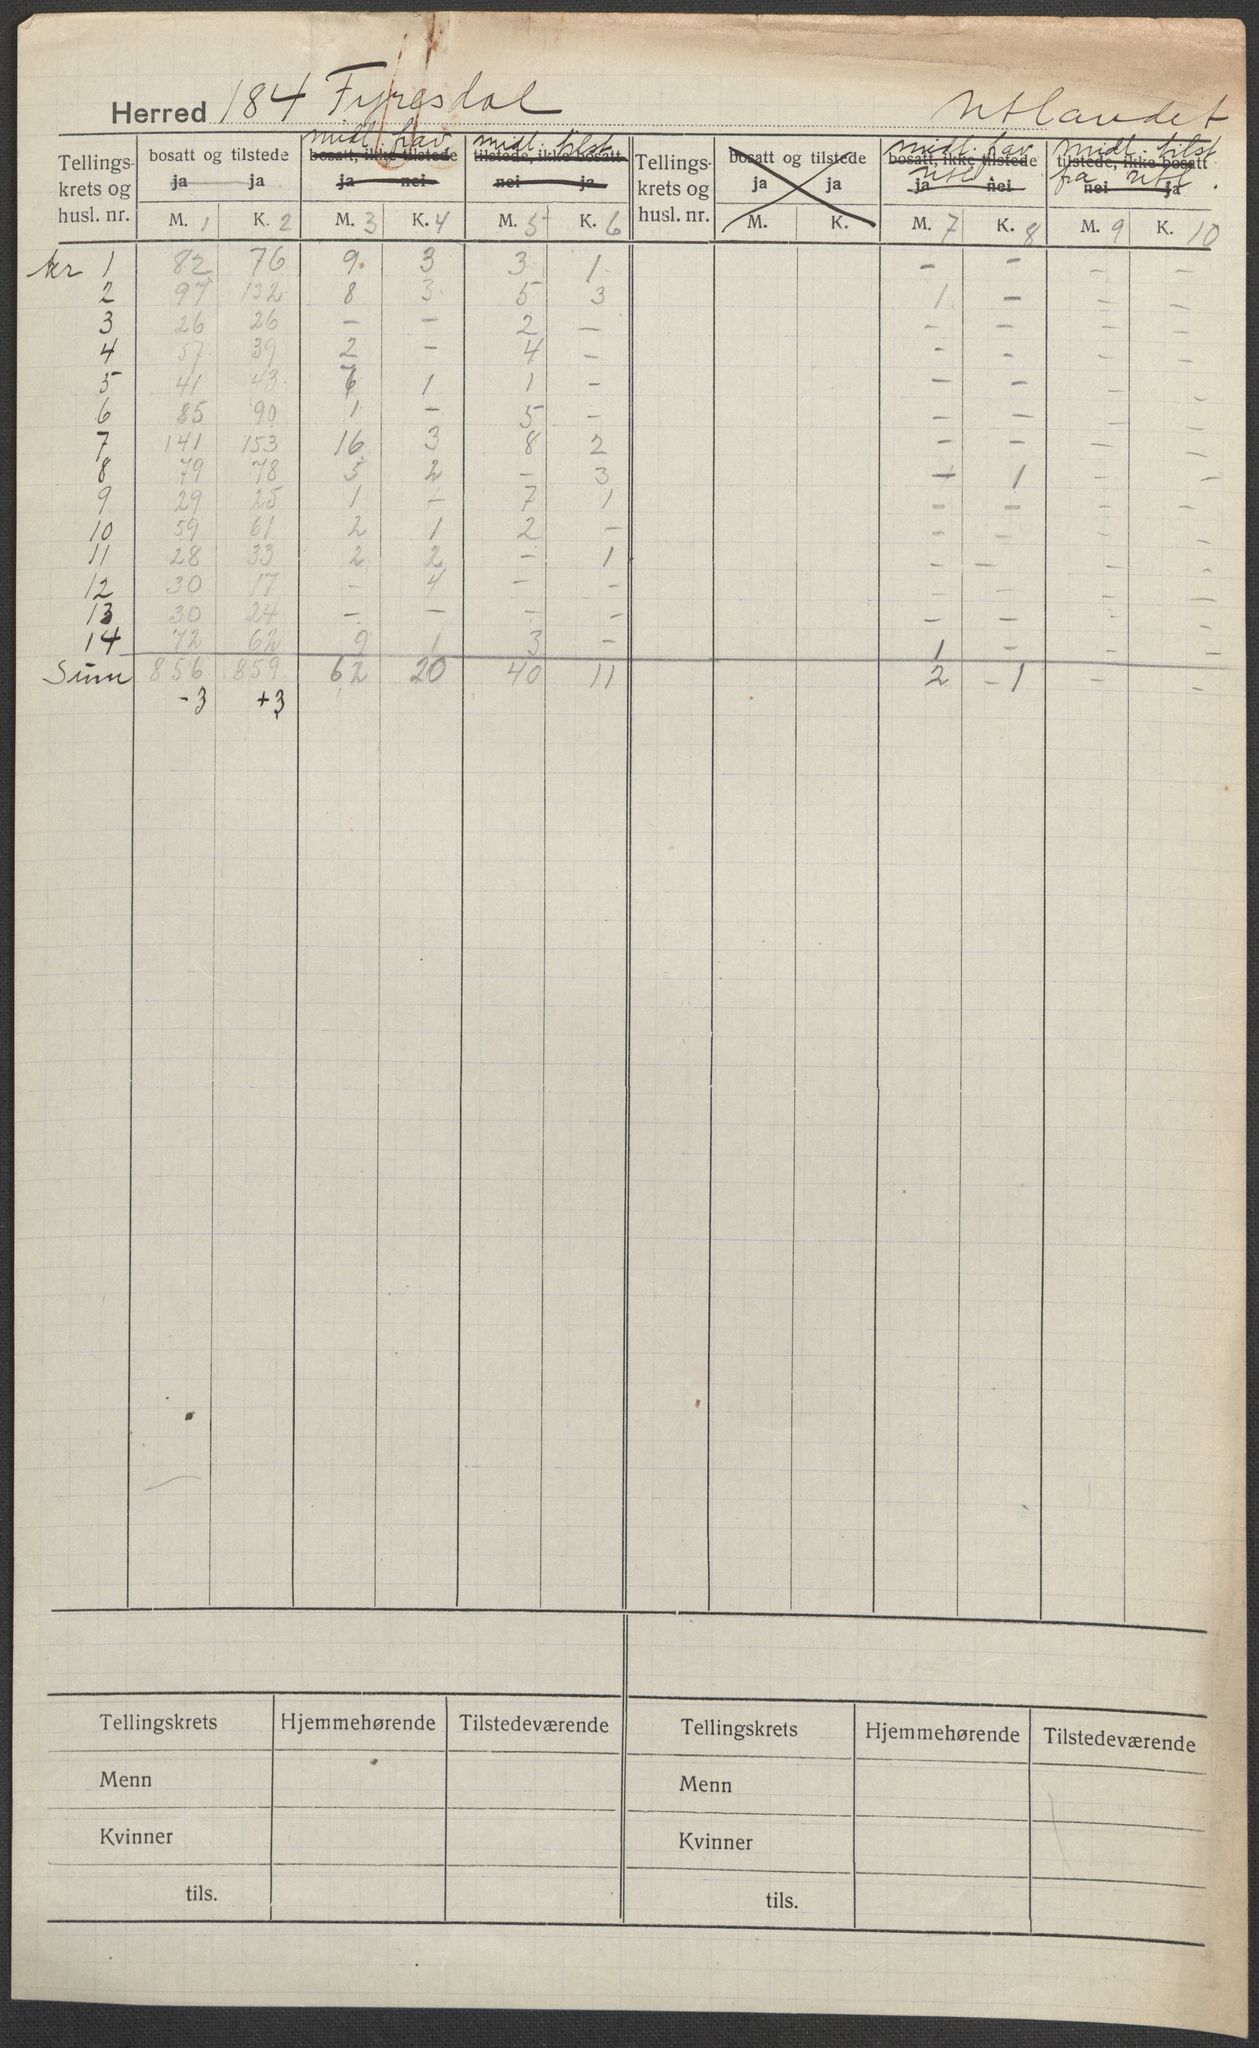 Herred 184 Fyresdal utlandet
midl. frav. midl. tilst midl. frav midl. tilst
Tellings- bosatt og tilstede bosatt, ikke tilstede tilstede, ikke bosatt Tellings- bosatt og tilstede bosatt, ikke tilstede tilstede, ikke bosatt
utl fra utl.
krets og ja ja ja nei nei ja krets og ja ja ja nei nei ja
husl. nr. M. 1 K. 2 M. 3 K. 4 M. 5 K. 6 husl. nr. M. K. M. 7 K. 8 M. 9 K. 10
kr 1 82 76 9 3 3 1 - - - -
2 97 132 8 3 5 3 1 - - -
3 26 26 - - 2 - - - - -
4 57 39 2 - 4 - - - - -
5 41 43 1 1 - - - - -
6 85 90 1 - 5 - - - - -
7 141 153 16 3 8 2 - - - -
8 79 78 5 2 - 3 - 1 - -
9 29 25 1 - 7 1 - - - -
10 59 61 2 1 2 - - - - -
11 28 33 2 2 - 1 - - - -
12 30 17 - 4 - - - - - -
13 30 24 - - - - - - - -
14 72 62 9 1 3 - 1 - - -
Sum 856 859 62 20 40 11 2 - 1 - -
-3 +3
Tellingskrets Hjemmehørende Tilstedeværende Tellingskrets Hjemmehørende Tilstedeværende
Menn Menn
Kvinner Kvinner
tils. tils.